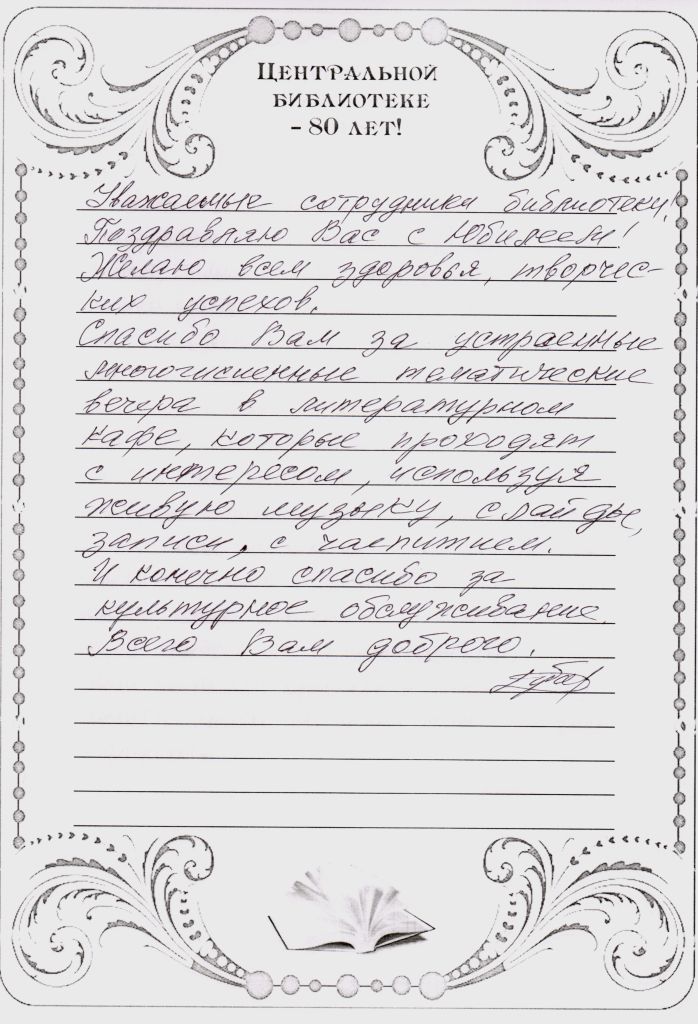 ЦЕНТРАЛЬНОЙ
БИБЛИОТЕКЕ
- 80 ЛЕТ!
Уважаемые сотрудники библиотеки!
Поздравляю Вас с Юбилеем!
Желаю всем здоровья, творчес-
ких успехов.
Спасибо Вам за устраенные
многочисленные тематические
вечера в литературном
кафе, которые проходят
с интересом, используя
живую музыку, слайды,
записи, с чаепитием.
И конечно спасибо за
культурное обслуживание.
Всего Вам доброго.